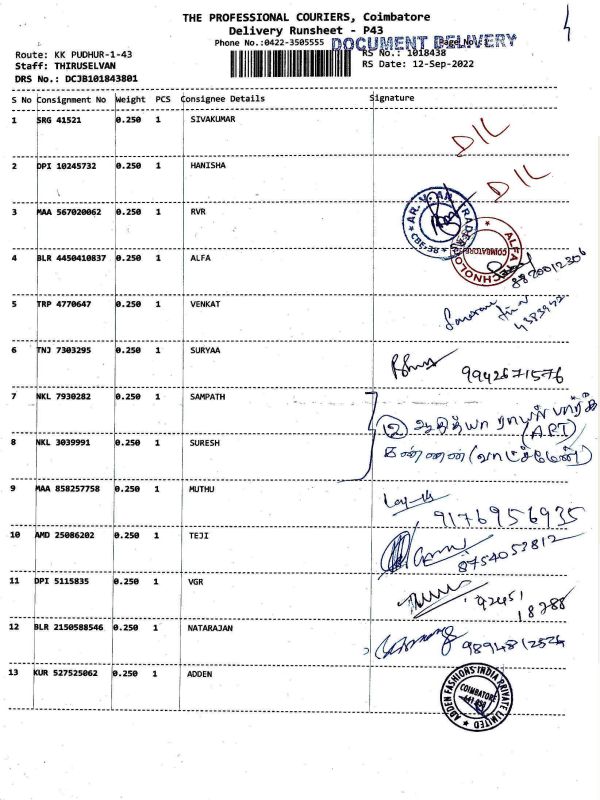 THE PROFESSIONAL COURIERS, Coimbatore
Delivery Runsheet - P43
Phone No.:0422-3505555 Page No.:
DOCUMENT DELIVERY
Route: KK PUDHUR-1-43 RS No.: 1018438
Staff: THIRUSELVAN RS Date: 12-Sep-2022
DRS No.: DCJB101843801
S No Consignment No Weight PCS Consignee Details Signature
1 SRG 41521 0.250 1 SIVAKUMAR D/L
2 DPI 10245732 0.250 1 HANISHA D/L
3 MAA 567020062 0.250 1 RVR
CBE-38
4 BLR 4450410837 0.250 1 ALFA
COIMBATORE
8820012306
5 TRP 4770647 0.250 1 VENKAT
6 TNJ 7303295 0.250 1 SURYAA
9942671576
7 NKL 7930282 0.250 1 SAMPATH
② ஆதித்யா ராயல் பார்க்
(APT)
8 NKL 3039991 0.250 1 SURESH
கண்ணன் (வாட்ச்மேன்)
9 MAA 858257758 0.250 1 MUTHU
9176956935
10 AMD 25086202 0.250 1 TEJI
8754053812
11 DPI 5115835 0.250 1 VGR
92451
18288
12 BLR 2150588546 0.250 1 NATARAJAN
9894812524
13 KUR 527525062 0.250 1 ADDEN
ADDEN FASHIONS INDIA PRIVATE LIMITED
COIMBATORE